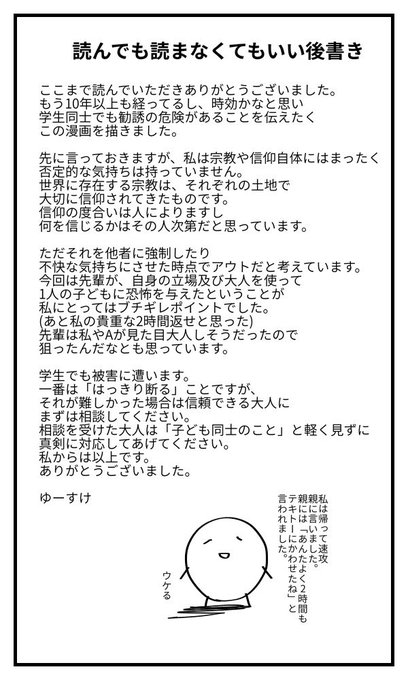 読んでも読まなくてもいい後書き
ここまで読んでいただきありがとうございました。
もう10年以上も経ってるし、時効かなと思い
学生同士でも勧誘の危険があることを伝えたく
この漫画を描きました。
先に言っておきますが、私は宗教や信仰自体にはまったく
否定的な気持ちは持っていません。
世界に存在する宗教は、それぞれの土地で
大切に信仰されてきたものです。
信仰の度合いは人によりますし
何を信じるかはその人次第だと思っています。
ただそれを他者に強制したり
不快な気持ちにさせた時点でアウトだと考えています。
今回は先輩が、自身の立場及び大人を使って
1人の子どもに恐怖を与えたということが
私にとってはブチギレポイントでした。
(あと私の貴重な2時間返せと思った)
先輩は私やAが見た目大人しそうだったので
狙ったんだなとも思っています。
学生でも被害に遭います。
一番は「はっきり断る」ことですが、
それが難しかった場合は信頼できる大人に
まずは相談してください。
相談を受けた大人は「子ども同士のこと」と軽く見ずに
真剣に対応してあげてください。
私からは以上です。
ありがとうございました。
ゆーすけ
私は帰って速攻
親に言いました。
親には「あんたよく2時間も
テキトーにかわせたね」と
言われました。
ウケる